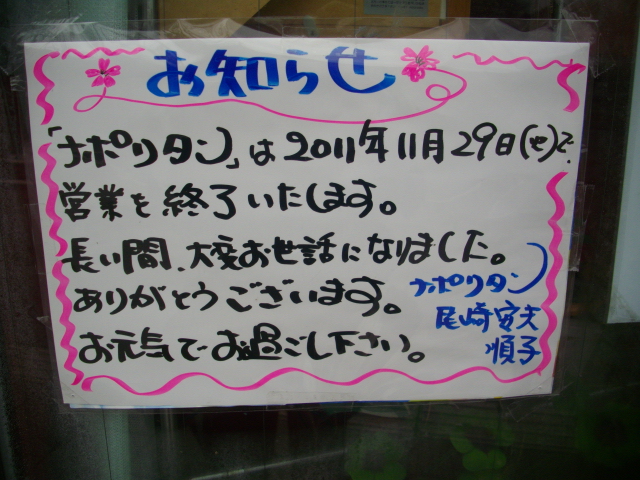 お知らせ
「ナポリタン」は2011年11月29日(火)で
営業を終了いたします。
長い間、大変お世話になりました。
ありがとうございます。
お元気でお過ごし下さい。
ナポリタン
尾崎安夫
順子